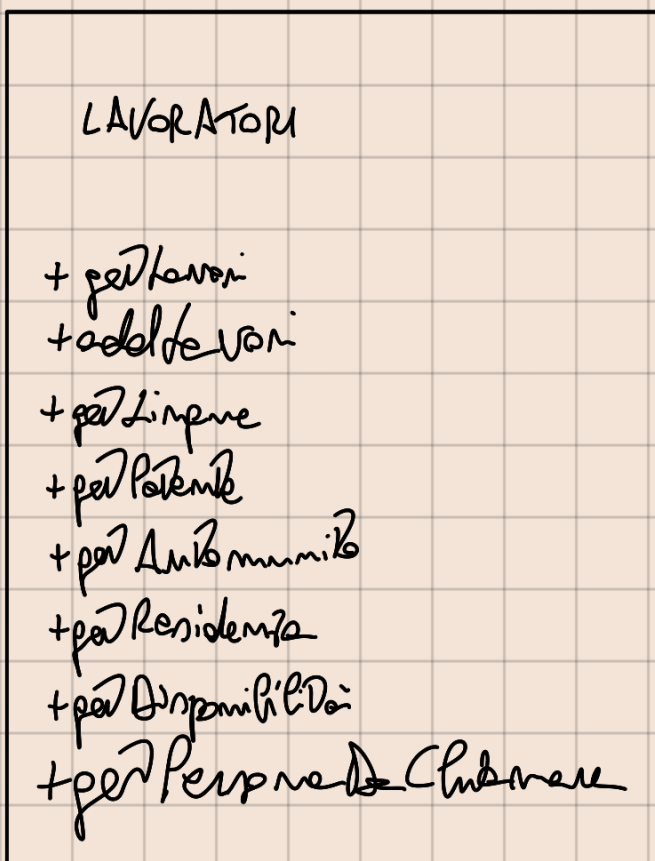 LAVORATORI
+ getLavori
+ addLavori
+ getLingue
+ getPatente
+ getAutomunito
+ getResidenza
+ getDisponibilità
+ getPersonaDaChiamare